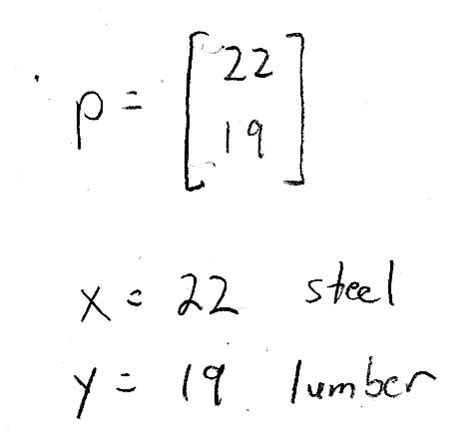 p = [22
19]
x = 22 steel
y = 19 lumber